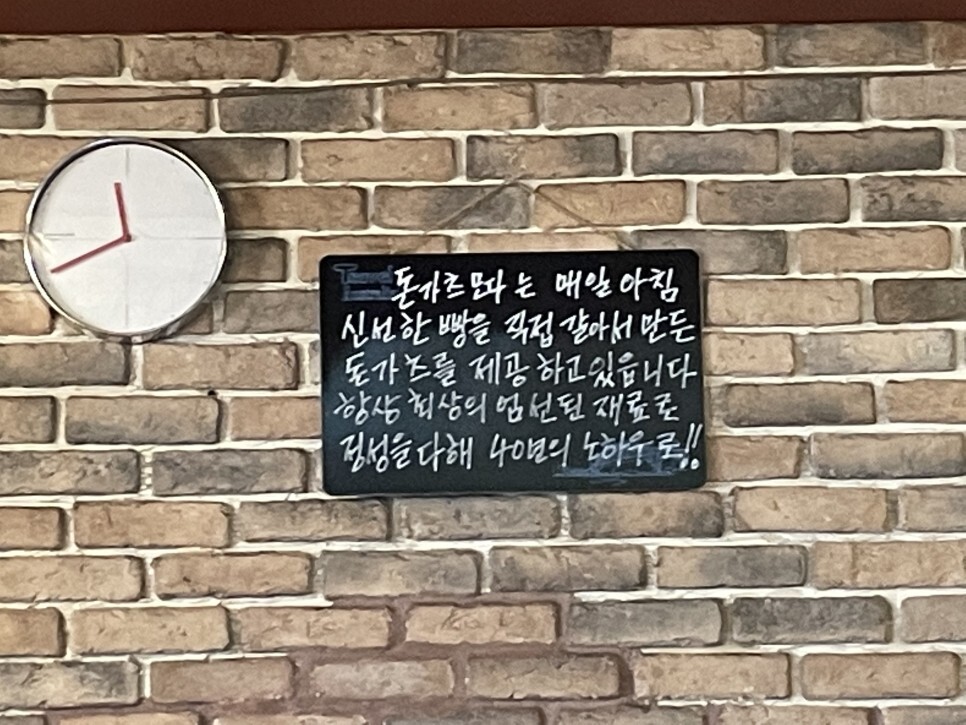 돈가츠모다는 매일 아침
신선한 빵을 직접 갈아서 만든
돈가츠를 제공 하고있읍니다
항상 최상의 엄선된 재료로
정성을다해 40년의 노하우로!!